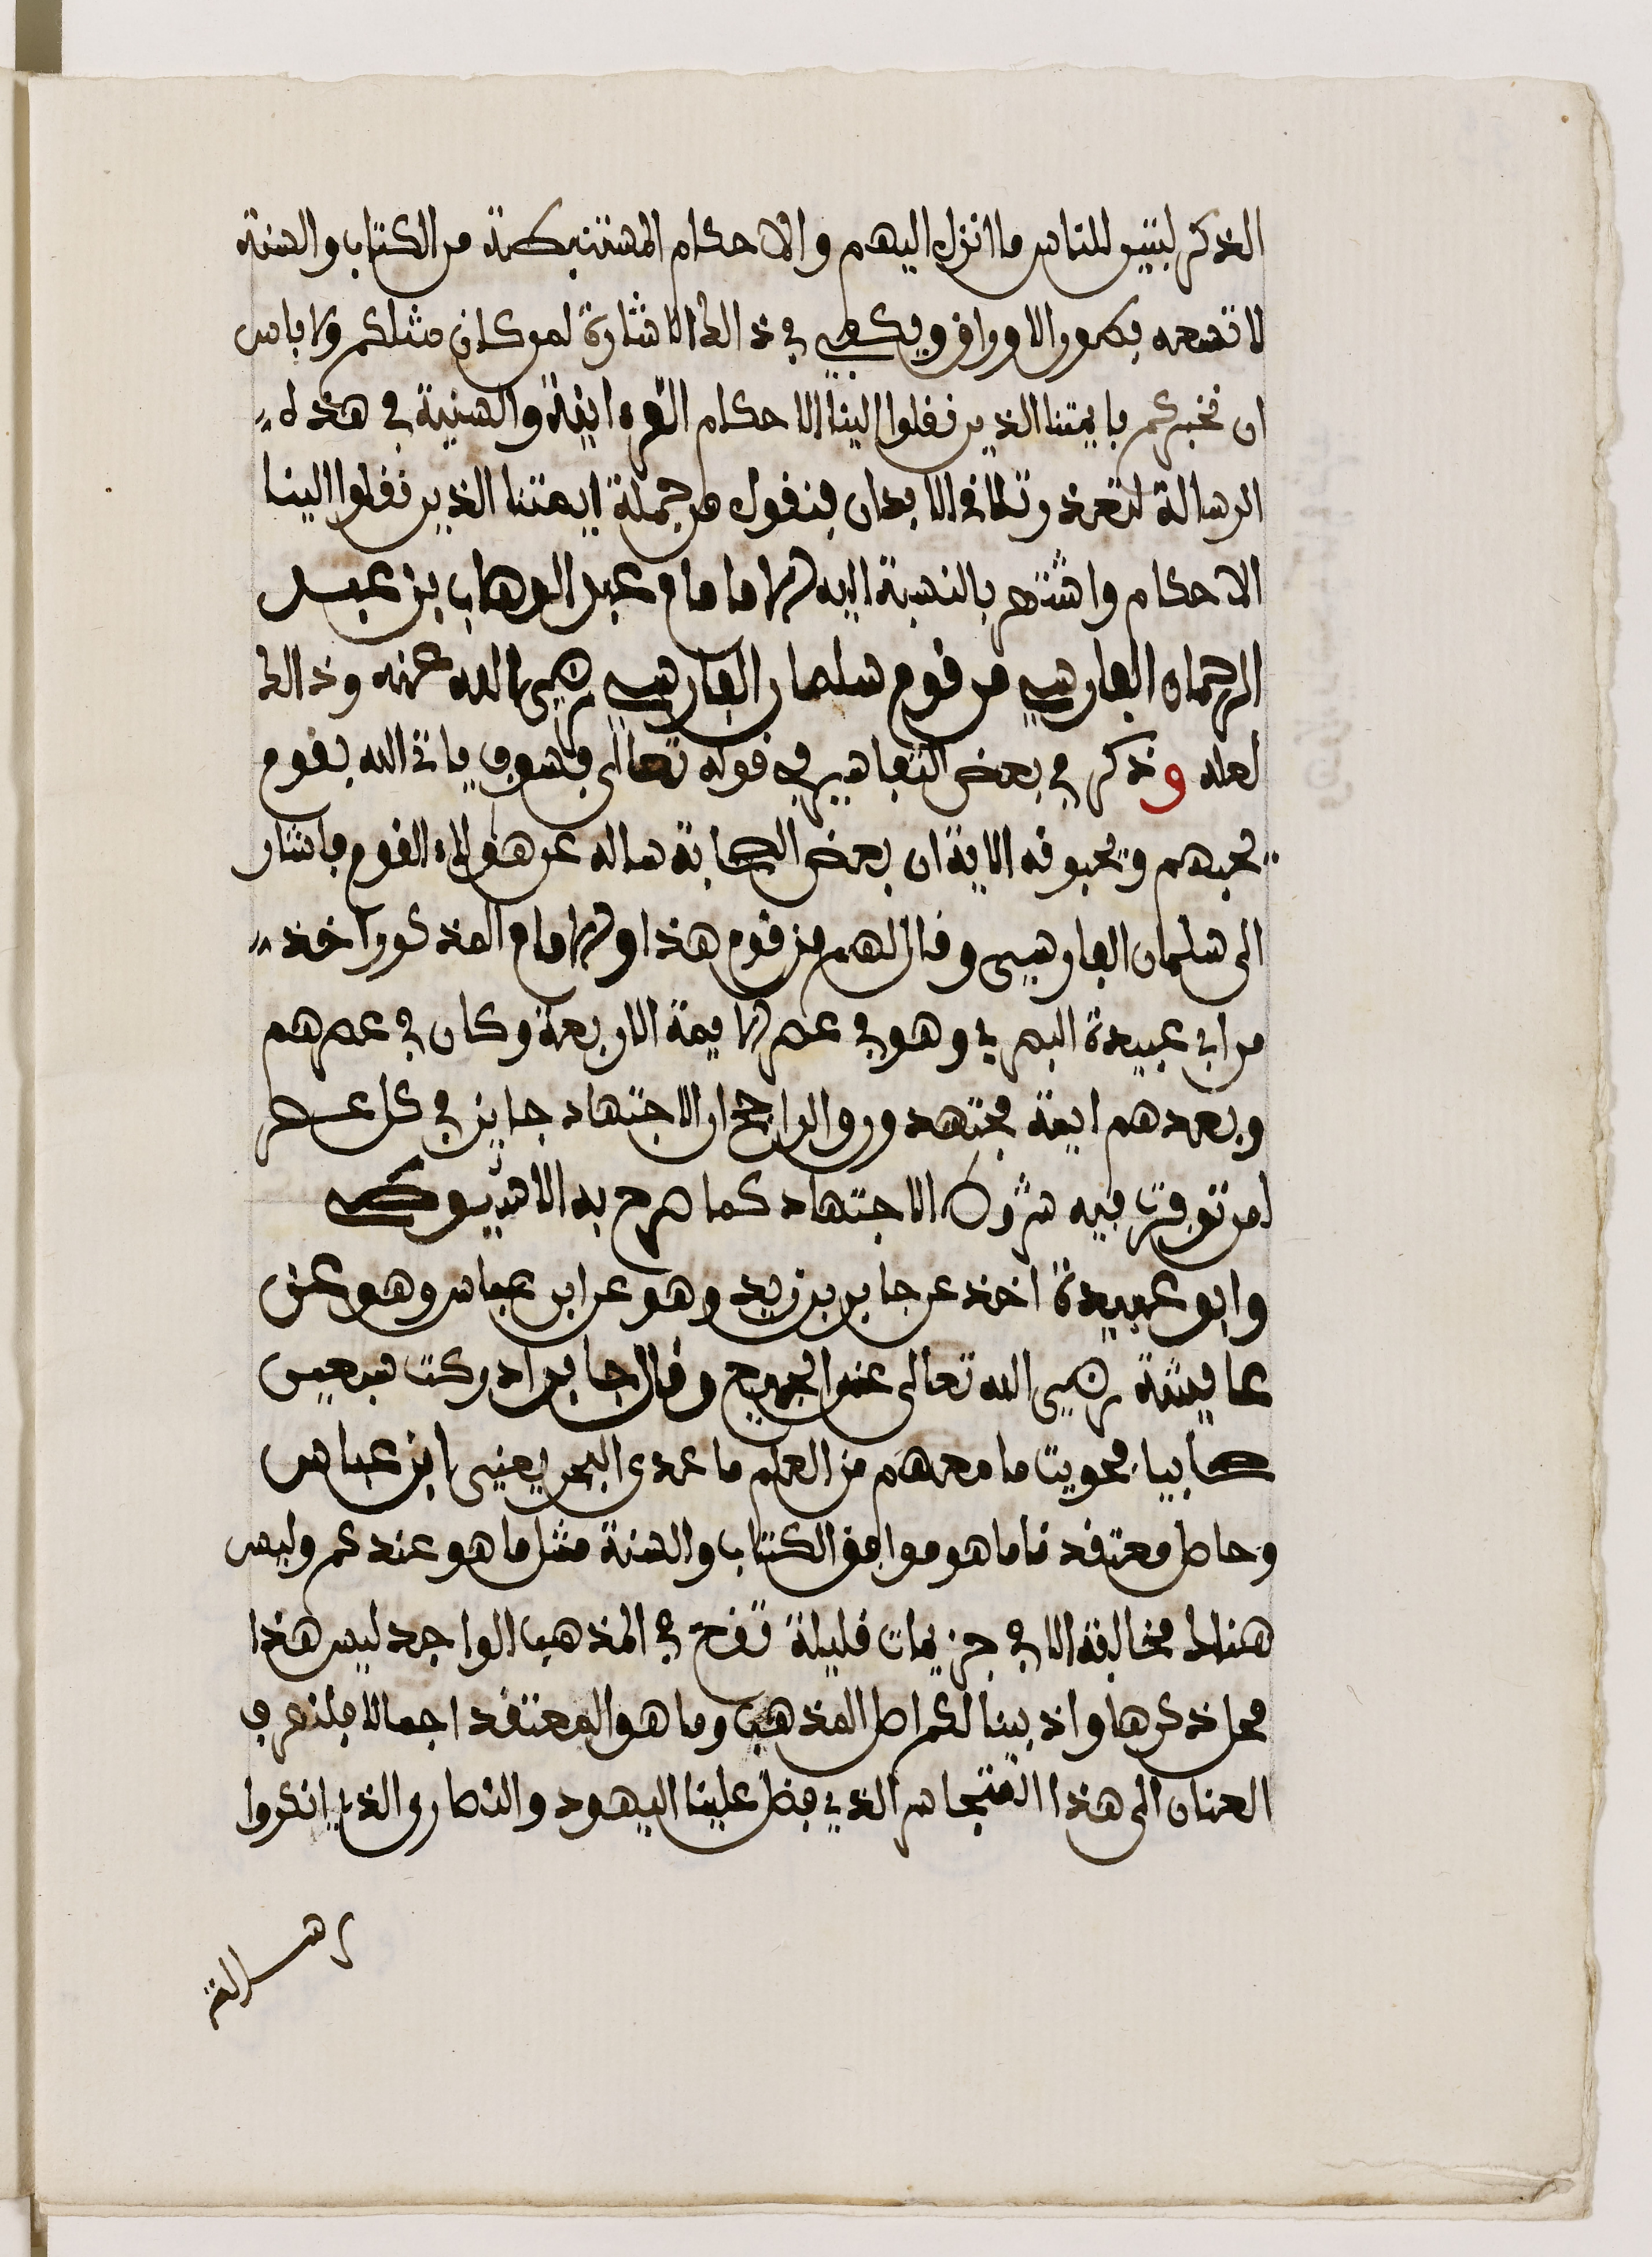 الذكر لتبين للناس ما انزل اليهم والاحكام المستنبطة من الكتاب والسنة
لا تسعه بطون الاوراق ويكفي في ذالك الاشارة لمن كان مثلكم ولا باس
ان نخبركم بايمتنا الذين نقلوا الينا الاحكام القرءانية والسنية في هذه
الرسالة لتعذر تلاقي الابدان فنقول من جملة ايمتنا الذين نقلوا الينا
الاحكام واشتهر بالنسبة اليه الامام عبد الوهاب بن عبد
الرحمان الفارسي من قوم سلمان الفارسي رضي الله عنه وذالك
لعله وذكر في بعض التفاسير في قوله تعالى فسوف ياتي الله بقوم
يحبهم ويحبونه الاية ان بعض الصحابة ساله عن هؤلاء القوم فاشار
الى سلمان الفارسي وقال لهم من قوم هذا والامام المذكور اخذ
من ابي عبيدة البصري وهو في عصر الايمة الاربعة وكان في عصرهم
وبعدهم ايمة مجتهدون والراجح ان الاجتهاد جايز في كل عصر
لمن توفرت فيه شروط الاجتهاد كما صرح به الاسيوطي
وابو عبيدة اخذ عن جابر بن زيد وهو عن ابن عباس وهو عن
عايشة رضي الله تعالى عن الجميع وقال جابر ادركت سبعين
صحابيا فحويت ما معهم من العلم ما عدى البحر يعني ابن عباس
وحاصل معتقدنا ما هو موافق الكتاب والسنة مثل ما هو عندكم وليس
هناك مخالفة الا في جزيات قليلة تقع في المذهب الواحد ليس هذا
محل ذكرها واذ بينا لكم اصل المذهب وما هو المعتقد اجمالا فلنصرف
العنان الى هذا المتجاسر الذي فضل علينا اليهود والنصارى الذين انكروا
رسالة